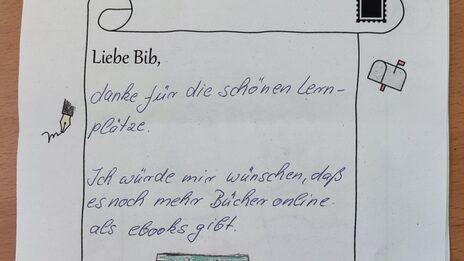 Liebe Bib,
danke für die schönen Lern-
plätze.
Ich würde mir wünschen, daß
es noch mehr Bücher online
als ebooks gibt.